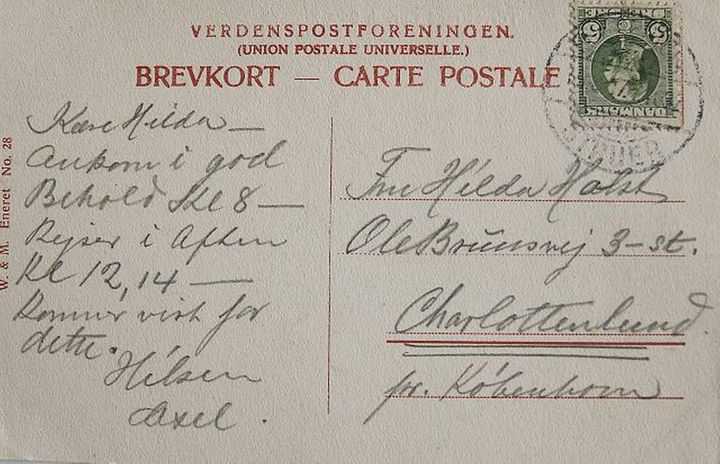 VERDENSPOSTFORENINGEN.
(UNION POSTALE UNIVERSELLE.)
BREVKORT — CARTE POSTALE
5 5
DANMARK
STRUER
W. & M. Eneret No. 28
Kære Hilda —
Ankom i god
Behold Kl 8 —
Rejser i Aften
Kl 12,14 —
Kommer vist før
dette.
Hilsen
Axel.
Fru Hilda Holst
Ole Bruusvej 3-st.
Charlottenlund.
pr. København